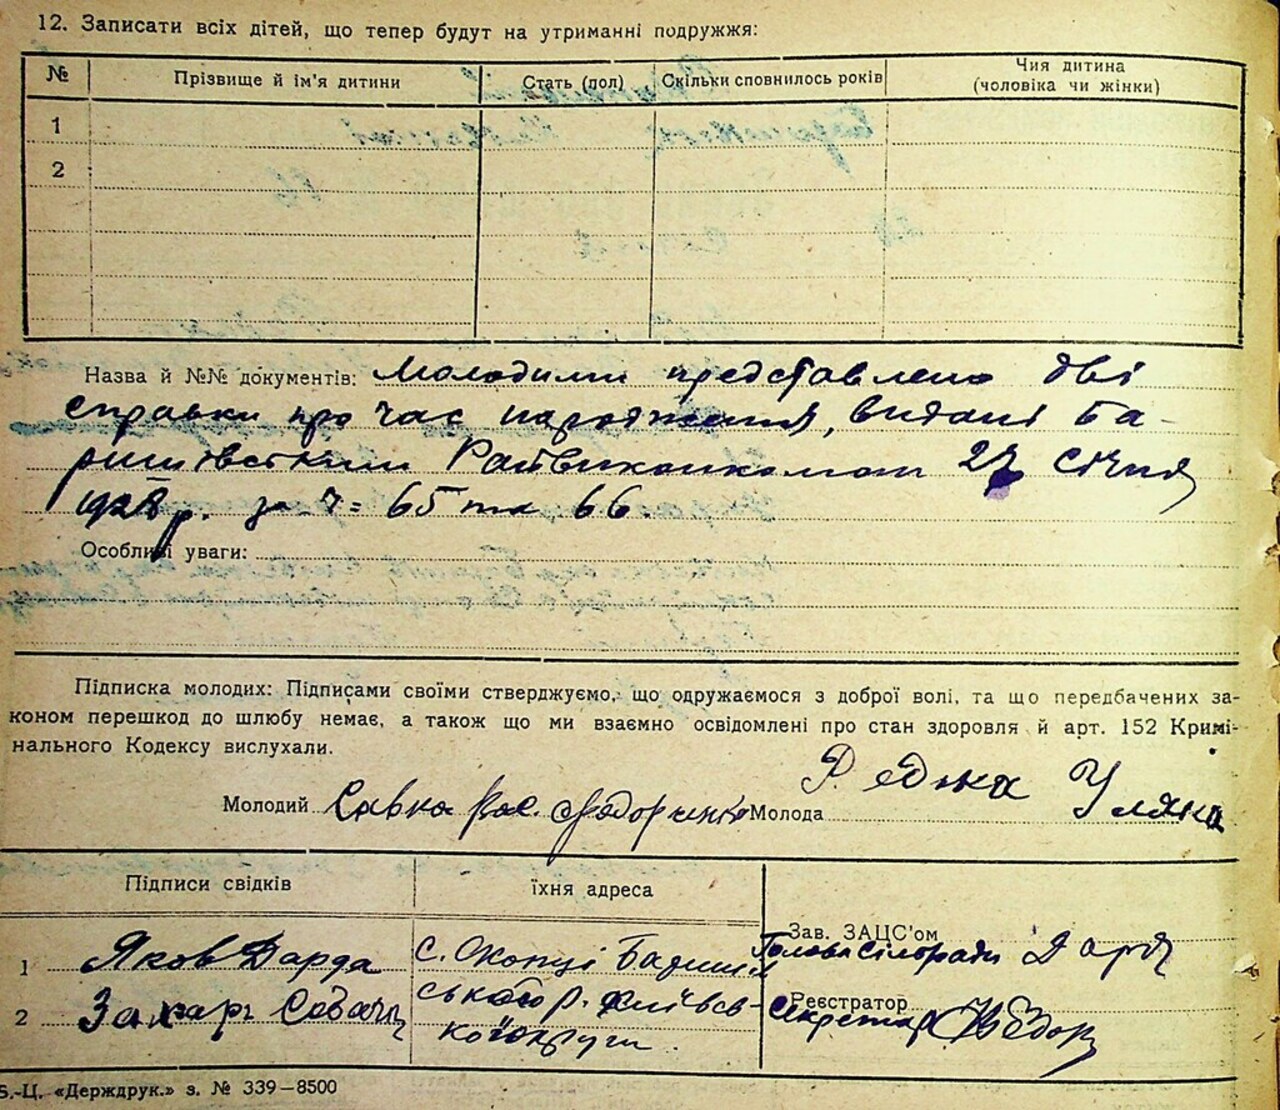 12. Записати всіх дітей, що тепер будут на утриманні подружжя:
№ Прізвище й ім'я дитини Стать (пол) Скільки сповнилось років Чия дитина
(чоловіка чи жінки)
1
2
Назва й №№ документів: Молодими представлено дві
справки про час народження, видані Ба-
ришівським Райвиконкомом 27 січня
1928 р. за ч= 65 та 66.
Особливі уваги:
Підписка молодих: Підписами своїми стверджуємо, що одружаємося з доброї волі, та що передбачених за-
коном перешкод до шлюбу немає, а також що ми взаємно освідомлені про стан здоровля й арт. 152 Кримі-
нального Кодексу вислухали.
Молодий Савка Вас. Федорченко Молода Редька Уляна
Підписи свідків їхня адреса
Зав. ЗАЦС'ом
1 Яков Дарда с. Скопці Баришів Голова Сільради
2 Захарь Собачь ського р. Київсь- Реєстратор
кої округи Секретар
Б.-Ц. «Держдрук.» з. № 339—8500